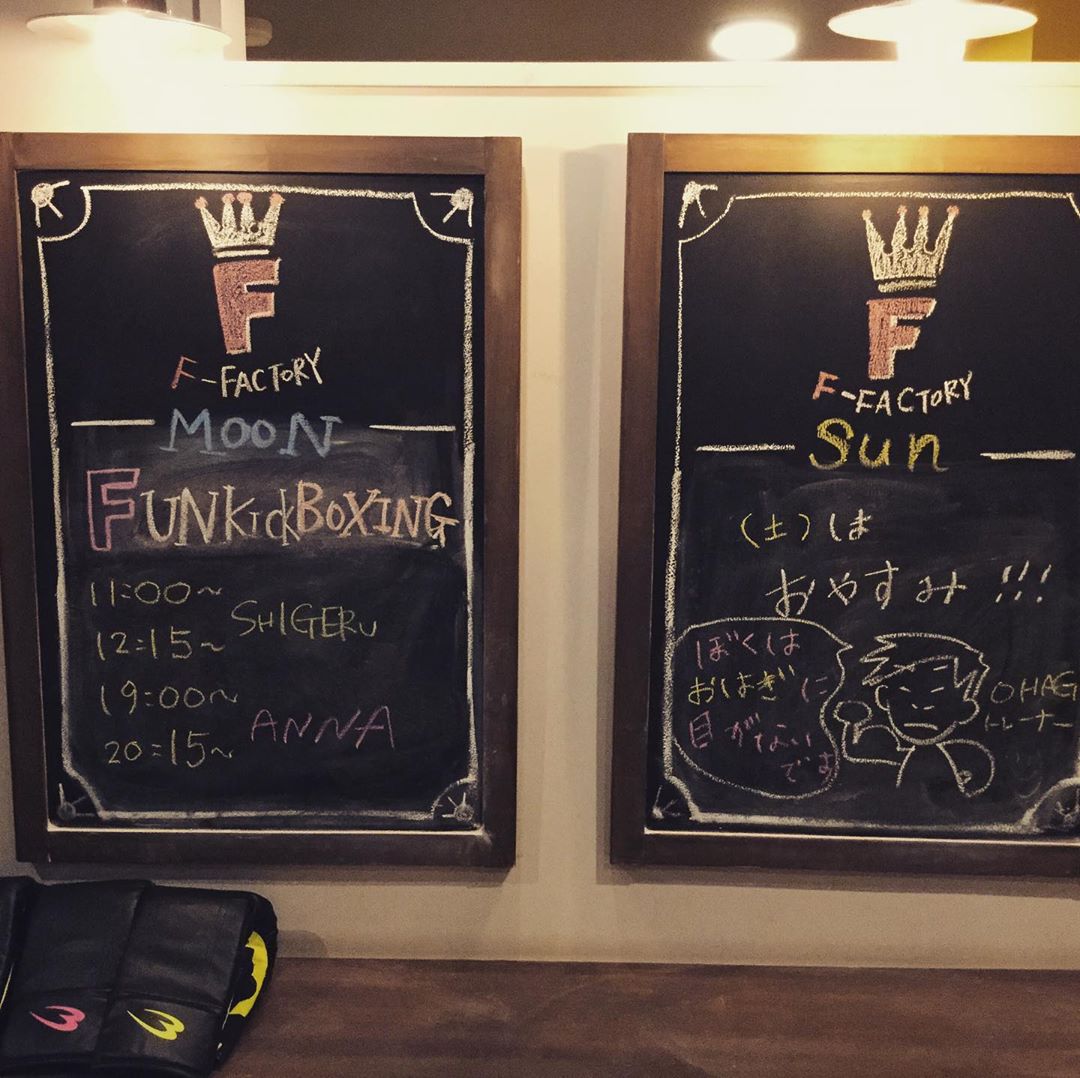 F
F-FACTORY
MOON
FUNKickBOXING
11:00~
SHIGERU
12:15~
19:00~
ANNA
20:15~
F
F-FACTORY
Sun
(土)は
おやすみ!!!
ぼくは
おはぎに
目がない
です
OHAG
トレーナー